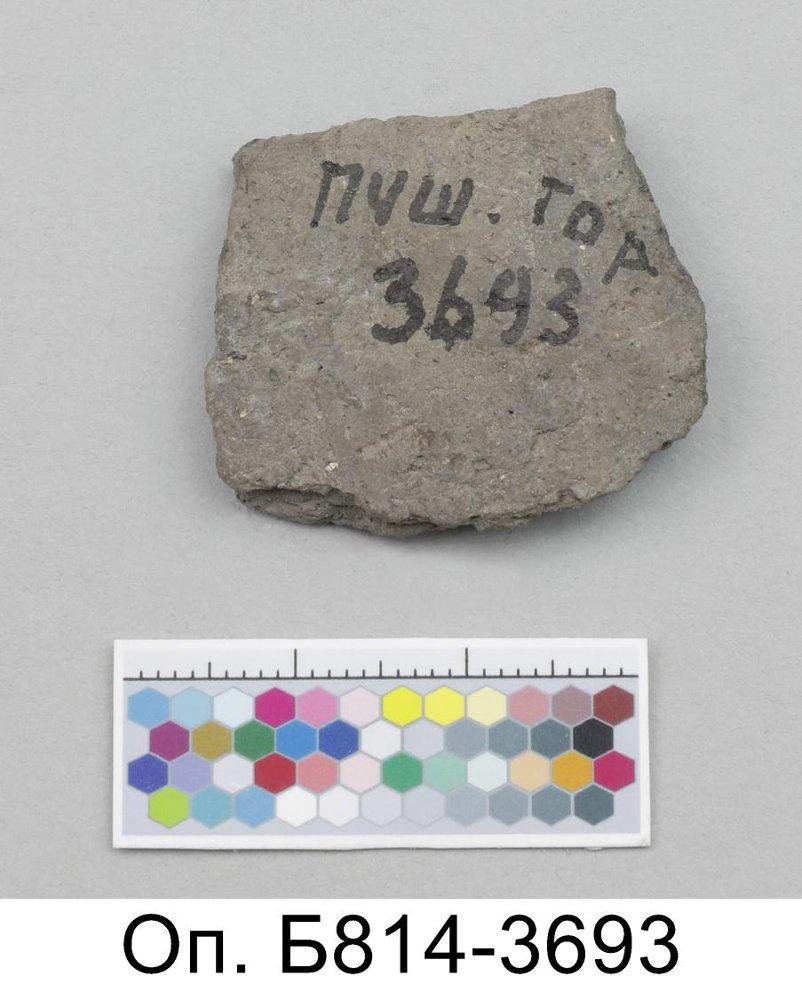 ПУШ. ГОР
3693
Оп. Б814-3693